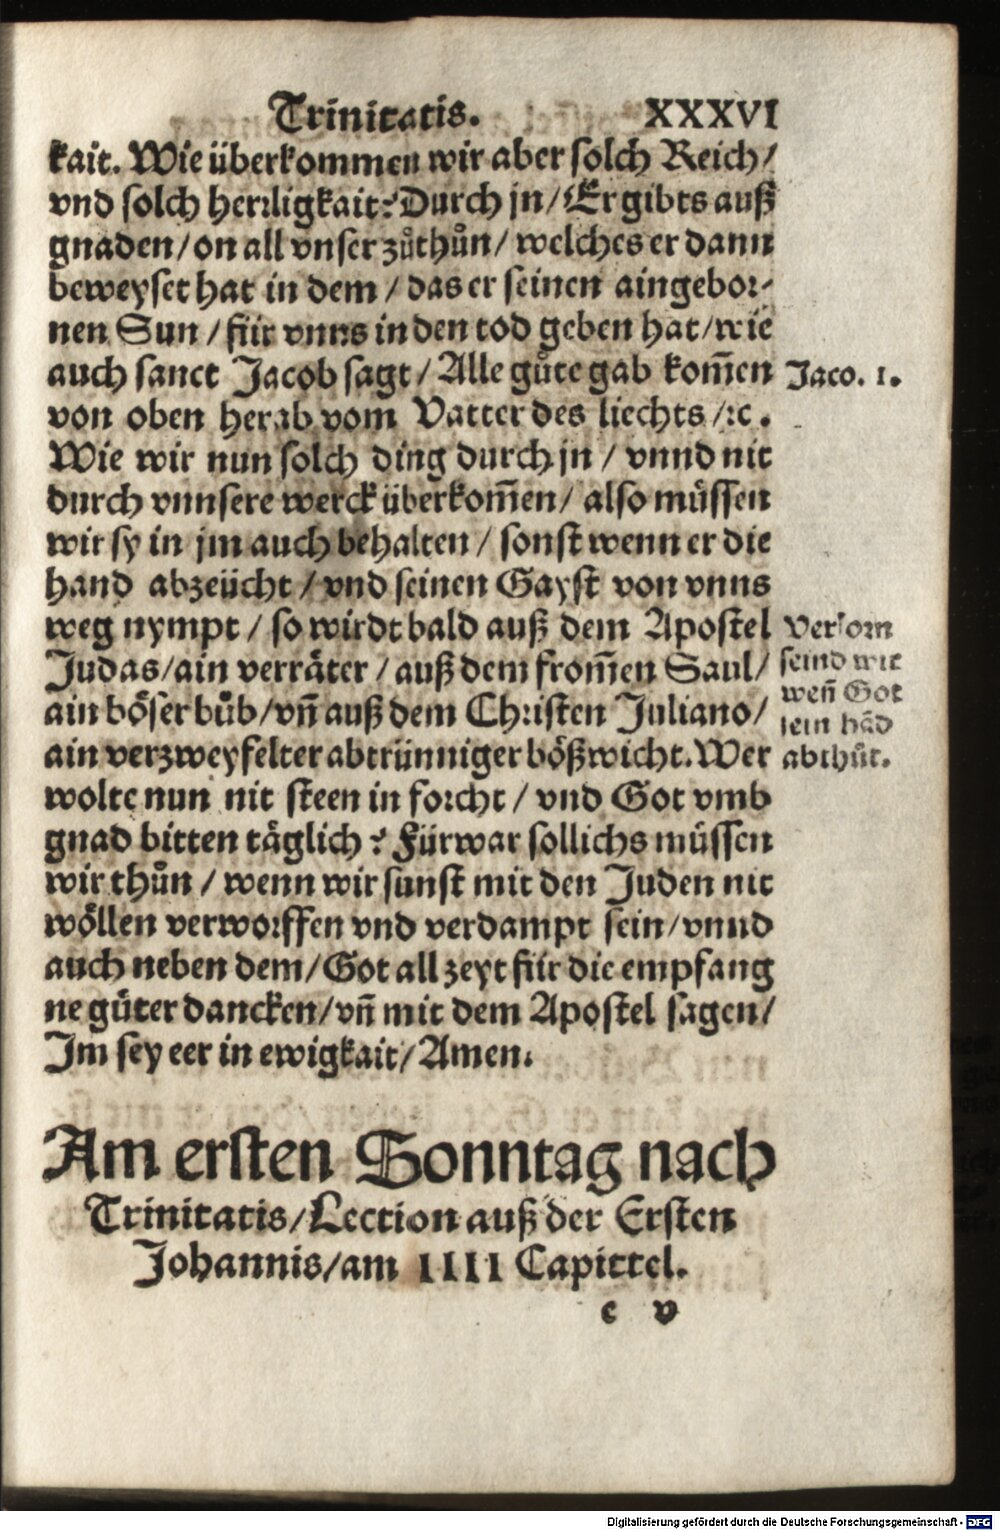 Trinitatis. XXXVI
kait. Wie überkommen wir aber solch Reich/
vnd solch herrligkait? Durch jn/ Er gibts auß
gnaden/ on all vnser zůthůn/ welches er dann
beweyset hat in dem/ das er seinen aingebor-
nen Sun/ für vnns in den tod geben hat/ wie
auch sanct Jacob sagt/ Alle gůte gab kom̃en
Jaco. 1.
von oben herab vom Vatter des liechts/ ꝛc.
Wie wir nun solch ding durch jn/ vnnd nit
durch vnnsere werck überkom̃en/ also müssen
wir sy in jm auch behalten/ sonst wenn er die
hand abzeücht/ vnd seinen Gayst von vnns
weg nympt/ so wirdt bald auß dem Apostel
Judas/ ain verräter/ auß dem from̃en Saul/
ain böser bůb/ vñ auß dem Christen Juliano/
ain verzweyfelter abtrünniger bößwicht. Wer
Verlorn
seind wir
weñ Got
sein hãd
abthůt.
wolte nun nit steen in forcht/ vnd Got vmb
gnad bitten täglich? Fürwar sollichs müssen
wir thůn/ wenn wir sunst mit den Juden nit
wöllen verworffen vnd verdampt sein/ vnnd
auch neben dem/ Got all zeyt für die empfang
ne güter dancken/ vñ mit dem Apostel sagen/
Jm sey eer in ewigkait/ Amen.
Am ersten Sonntag nach
Trinitatis/ Lection auß der Ersten
Johannis/ am IIII Capittel.
e v
Digitalisierung gefördert durch die Deutsche Forschungsgemeinschaft - DFG